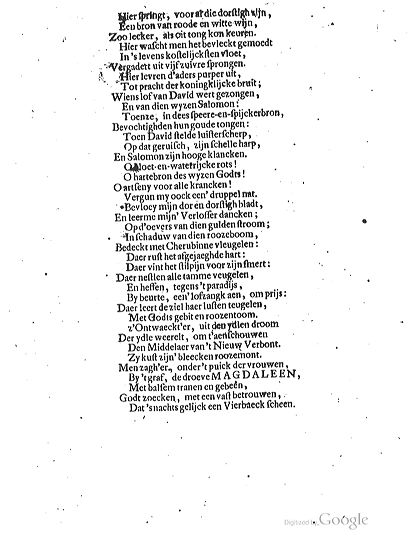 Hier springt, voor al die dorstigh zijn,
Een bron van roode en witte wijn,
Zoo lecker, als oit tong kon keuren.
Hier wascht men het bevleckt gemoedt
In 's levens kostelijcksten vloet,
Vergadert uit vijf zuivre sprongen.
Hier levren d'aders purper uit,
Tot pracht der koningklijcke bruit;
Wiens lof van David wert gezongen,
En van dien wyzen Salomon:
Toen ze, in dees speere-en-spijckerbron,
Bevochtighden hun goude tongen:
Toen David stelde luisterscherp,
Op dat geruisch, zijn schelle harp,
En Salomon zijn hooge klancken.
O bloet-en-waterrijcke rots!
O hartebron des wyzen Godts!
O artseny voor alle krancken!
Vergun my oock een' druppel nat.
Bevlocy mijn dor en dorstigh bladt,
En leerme mijn' Verlosser dancken;
Op d'oevers van dien gulden stroom;
In schaduw van dien roozeboom,
Bedeckt met Cherubinne vleugelen:
Daer rust het afgejaeghde hart:
Daer vint het stilpijn voor zijn smert:
Daer nestlen alle tamme veugelen,
En heffen, tegens 't paradijs,
By beurte, een' lofzangk aen, om prijs:
Daer leert de ziel haer lusten teugelen,
Met Godts gebit en roozentoom.
z'Ontwaeckt'er, uit den ydlen droom
Der ydle weerelt, om t'aenschouwen
Den Middelaer van 't Nieuw Verbont.
Zy kust zijn' bleecken roozemont.
Men zagh'er, onder 't puick der vrouwen,
By 't graf, de droeve MAGDALEEN,
Met balsem tranen en gebeên,
Godt zoecken, met een vast betrouwen,
Dat 's nachts gelijck een Vierbaeck scheen.
Digitized by Google